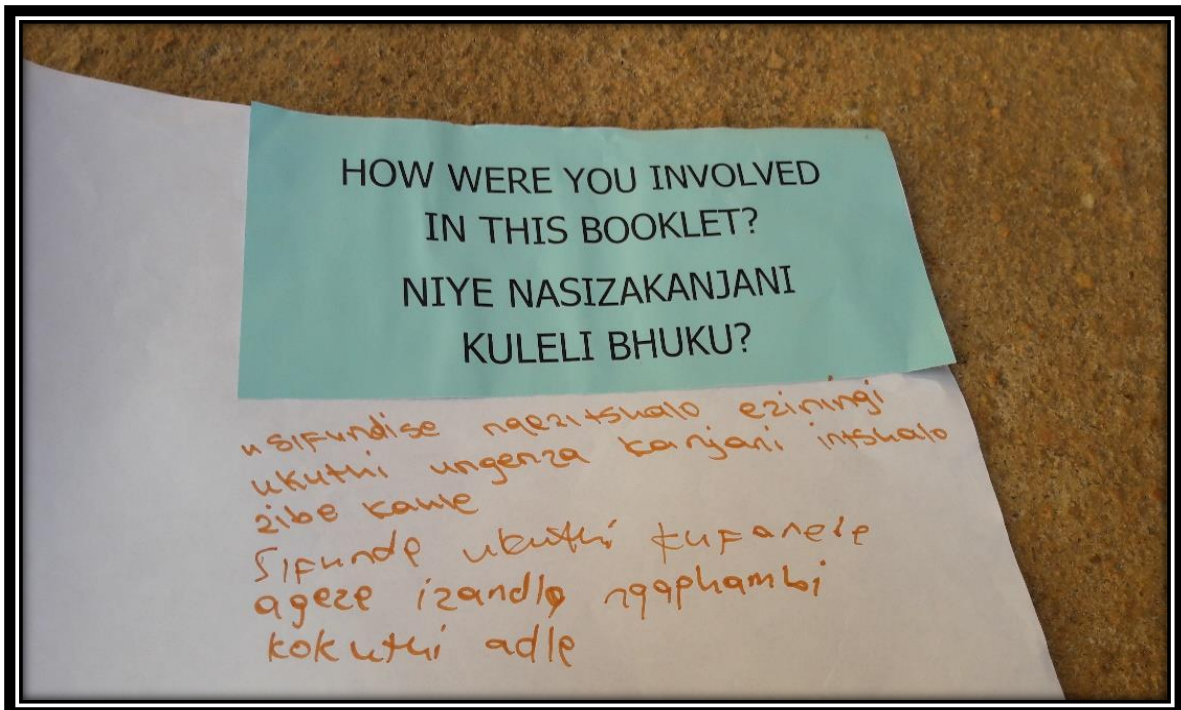 HOW WERE YOU INVOLVED
IN THIS BOOKLET?
NIYE NASIZAKANJANI
KULELI BHUKU?
usifundise ngezitshalo eziningi
ukuthi ungenza kanjani intshalo
zibe kahle
Sifunde ukuthi kufanele
ageze izandla ngaphambi
kokuthi adle